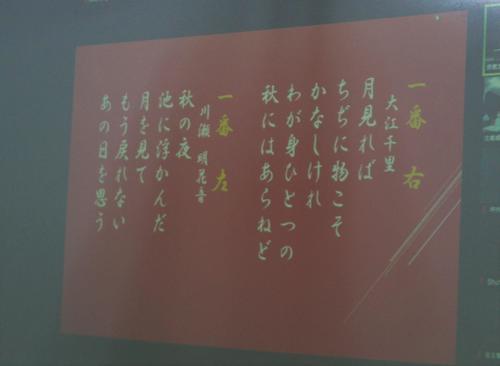 一番 右
大江千里
月見れば
ちぢに物こそ
かなしけれ
わが身ひとつの
秋にはあらねど
一番 左
川瀬 明花音
秋の夜
池に浮かんだ
月を見て
もう戻れない
あの日を思う